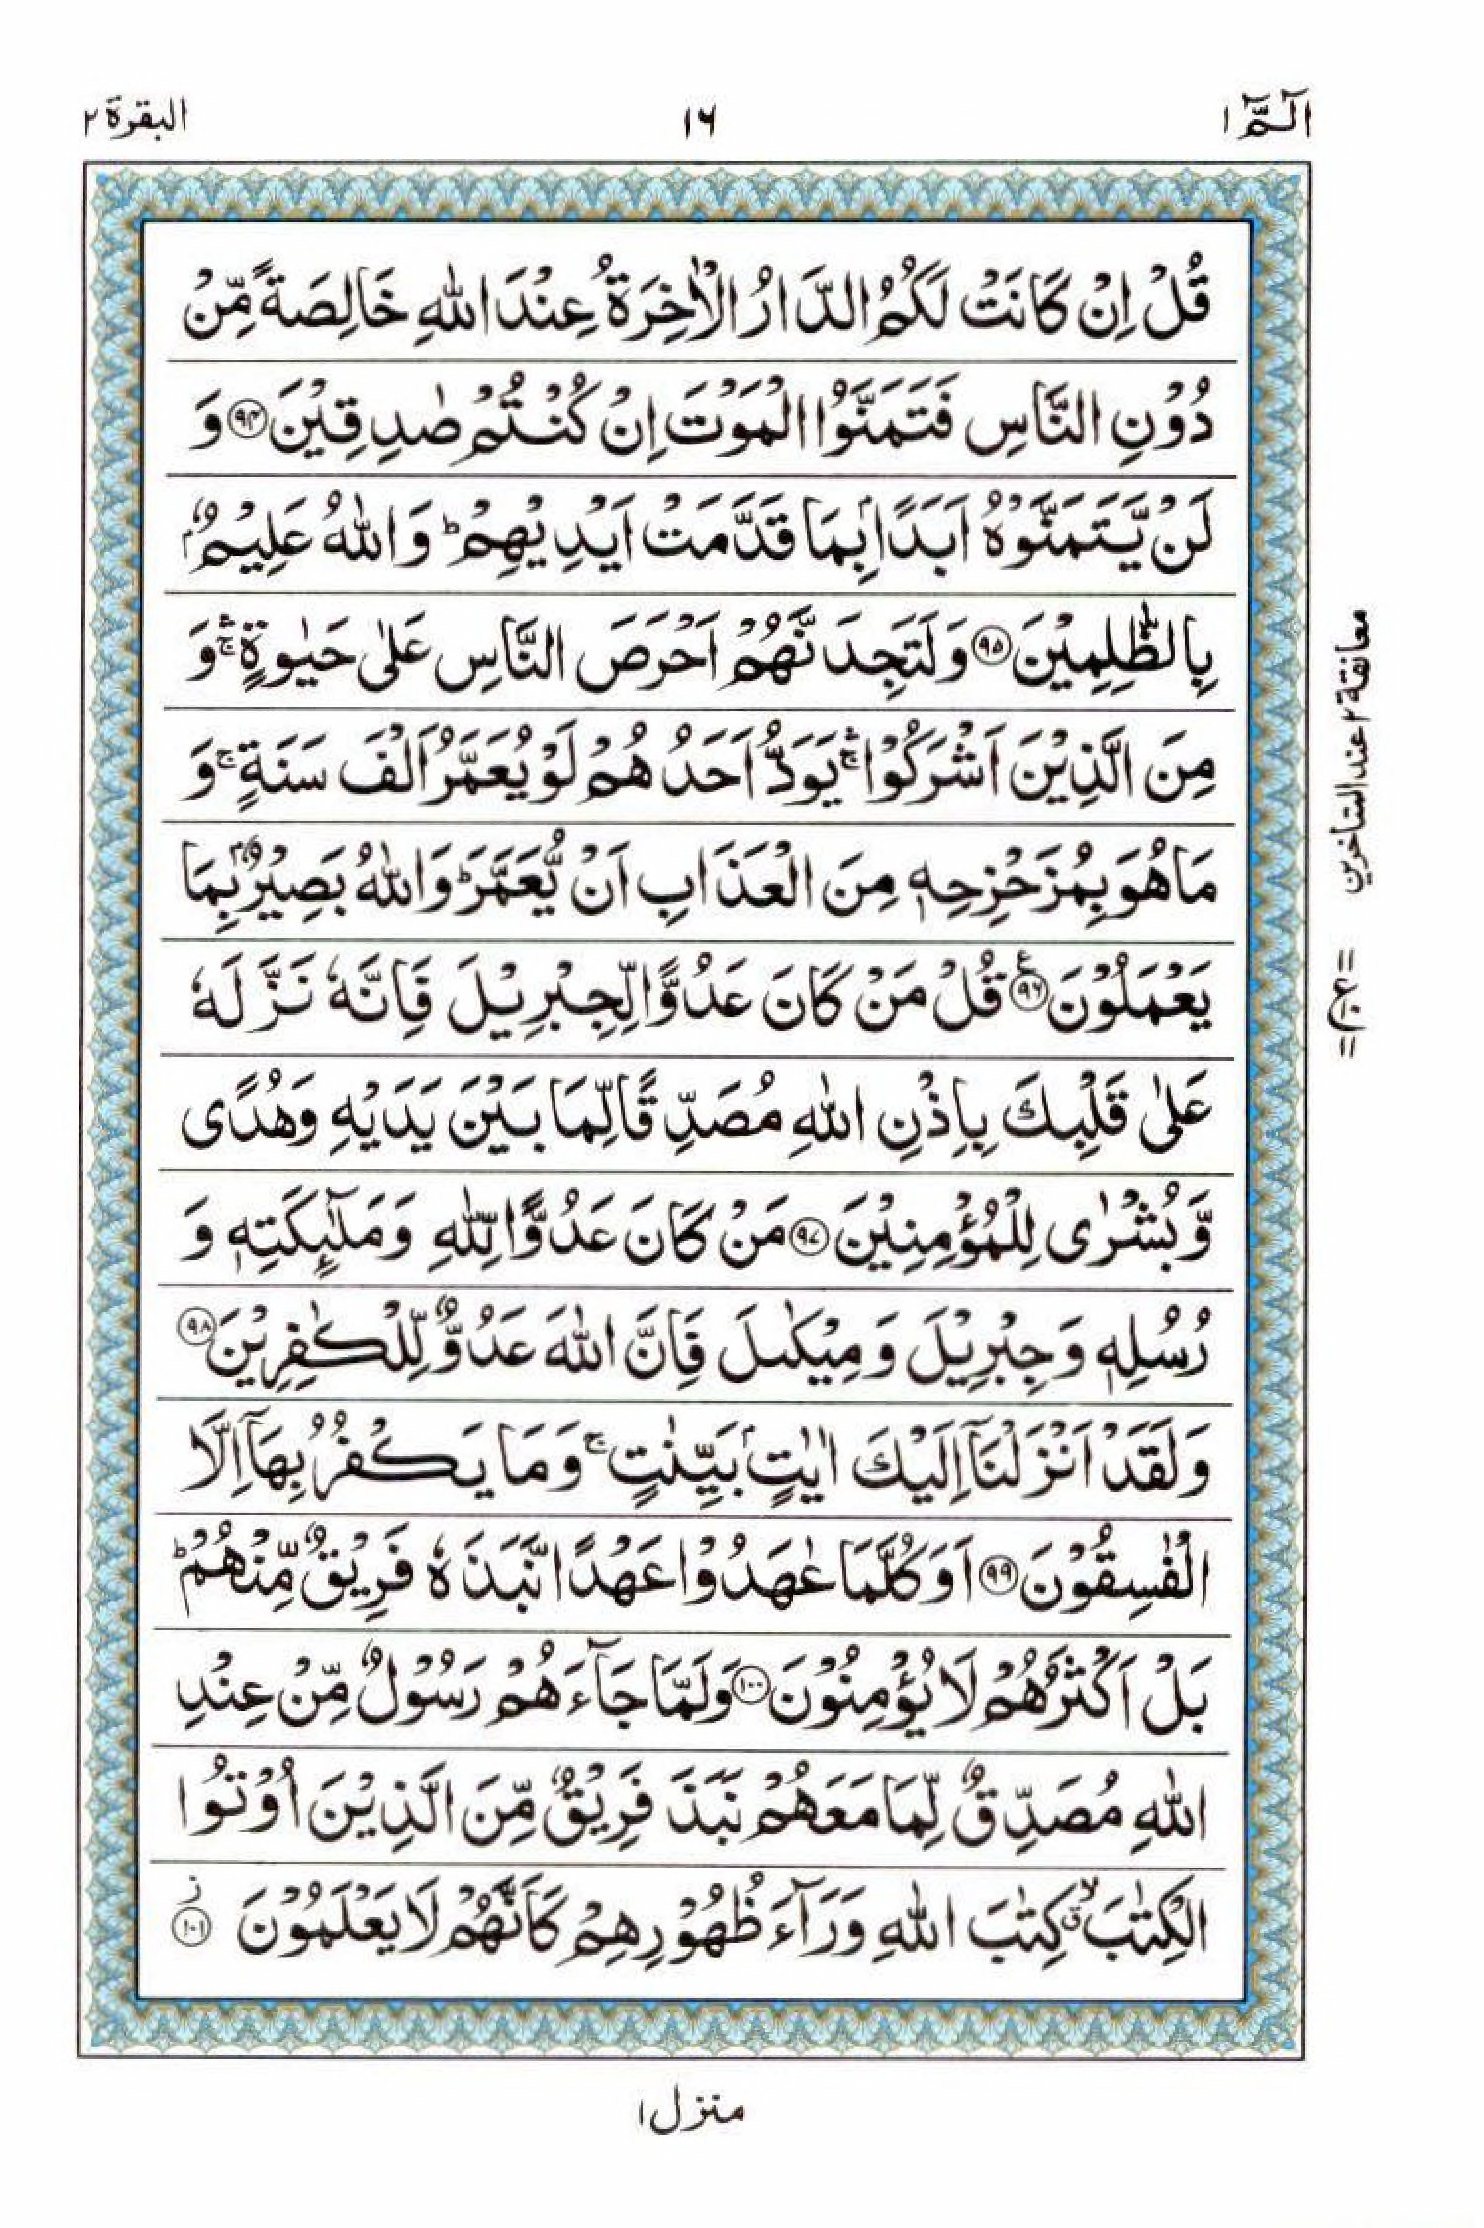 الٓمّٓ ١
١٦
البقرة ٢
قُلْ اِنْ كَانَتْ لَكُمُ الدَّارُ الْاٰخِرَةُ عِنْدَ اللّٰهِ خَالِصَةً مِّنْ
دُوْنِ النَّاسِ فَتَمَنَّوُا الْمَوْتَ اِنْ كُنْتُمْ صٰدِقِيْنَ ﴿٩٤﴾ وَ
لَنْ يَّتَمَنَّوْهُ اَبَدًۢا بِمَا قَدَّمَتْ اَيْدِيْهِمْ ؕ وَاللّٰهُ عَلِيْمٌۢ
بِالظّٰلِمِيْنَ ﴿٩٥﴾ وَلَتَجِدَنَّهُمْ اَحْرَصَ النَّاسِ عَلٰى حَيٰوةٍ ۛۚ وَ
مِنَ الَّذِيْنَ اَشْرَكُوْا ۛۚ يَوَدُّ اَحَدُهُمْ لَوْ يُعَمَّرُ اَلْفَ سَنَةٍ ۚ وَ
مَا هُوَ بِمُزَحْزِحِهٖ مِنَ الْعَذَابِ اَنْ يُّعَمَّرَ ؕ وَاللّٰهُ بَصِيْرٌۢ بِمَا
يَعْمَلُوْنَ ﴿٩٦﴾ قُلْ مَنْ كَانَ عَدُوًّا لِّجِبْرِيْلَ فَاِنَّهٗ نَزَّلَهٗ
عَلٰى قَلْبِكَ بِاِذْنِ اللّٰهِ مُصَدِّقًا لِّمَا بَيْنَ يَدَيْهِ وَهُدًى
وَّبُشْرٰى لِلْمُؤْمِنِيْنَ ﴿٩٧﴾ مَنْ كَانَ عَدُوًّا لِّلّٰهِ وَمَلٰٓئِكَتِهٖ وَ
رُسُلِهٖ وَجِبْرِيْلَ وَمِيْكٰىلَ فَاِنَّ اللّٰهَ عَدُوٌّ لِّلْكٰفِرِيْنَ ﴿٩٨﴾
وَلَقَدْ اَنْزَلْنَاۤ اِلَيْكَ اٰيٰتٍۭ بَيِّنٰتٍ ۚ وَمَا يَكْفُرُ بِهَاۤ اِلَّا
الْفٰسِقُوْنَ ﴿٩٩﴾ اَوَكُلَّمَا عٰهَدُوْا عَهْدًا نَّبَذَهٗ فَرِيْقٌ مِّنْهُمْ ؕ
بَلْ اَكْثَرُهُمْ لَا يُؤْمِنُوْنَ ﴿١٠٠﴾ وَلَمَّا جَآءَهُمْ رَسُوْلٌ مِّنْ عِنْدِ
اللّٰهِ مُصَدِّقٌ لِّمَا مَعَهُمْ نَبَذَ فَرِيْقٌ مِّنَ الَّذِيْنَ اُوْتُوا
الْكِتٰبَ ۙۗ كِتٰبَ اللّٰهِ وَرَآءَ ظُهُوْرِهِمْ كَاَنَّهُمْ لَا يَعْلَمُوْنَ ﴿١٠١﴾ ز
معانقة ٢ عند المتاخرين
منزل ١